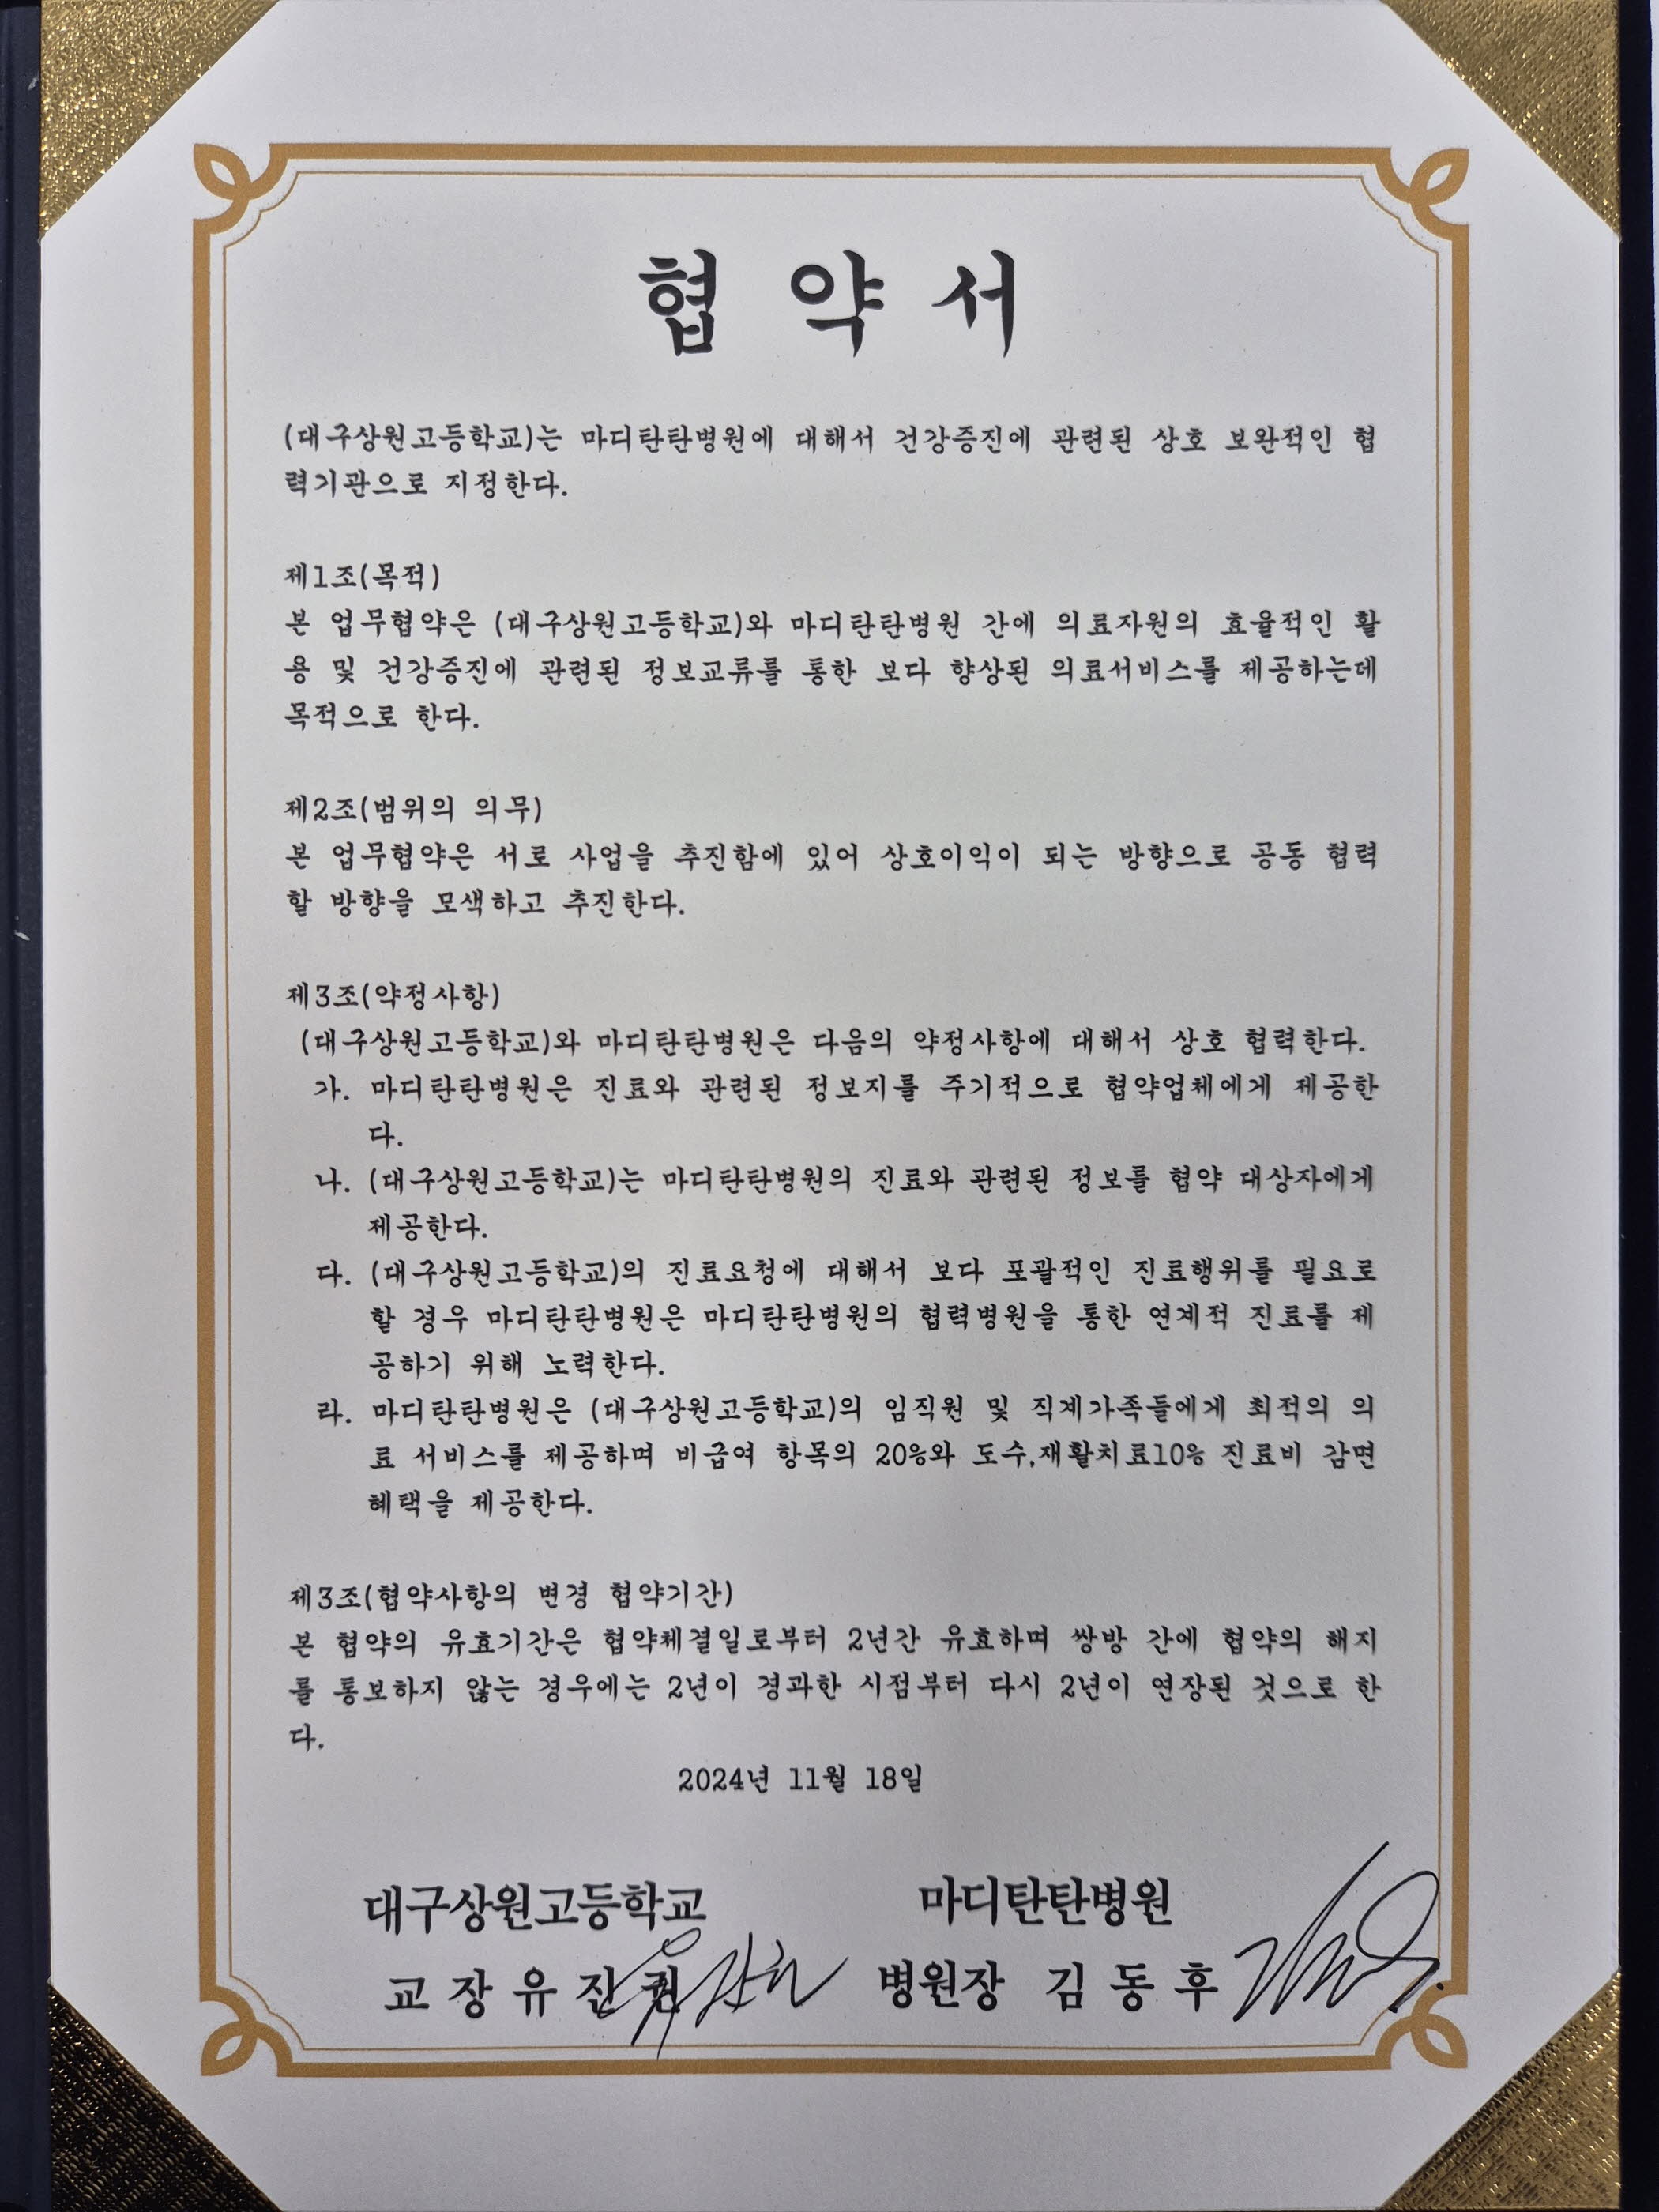 협 약 서
(대구상원고등학교)는 마디탄탄병원에 대해서 건강증진에 관련된 상호 보완적인 협
력기관으로 지정한다.
제1조(목적)
본 업무협약은 (대구상원고등학교)와 마디탄탄병원 간에 의료자원의 효율적인 활
용 및 건강증진에 관련된 정보교류를 통한 보다 향상된 의료서비스를 제공하는데
목적으로 한다.
제2조(범위의 의무)
본 업무협약은 서로 사업을 추진함에 있어 상호이익이 되는 방향으로 공동 협력
할 방향을 모색하고 추진한다.
제3조(약정사항)
(대구상원고등학교)와 마디탄탄병원은 다음의 약정사항에 대해서 상호 협력한다.
가. 마디탄탄병원은 진료와 관련된 정보지를 주기적으로 협약업체에게 제공한
다.
나. (대구상원고등학교)는 마디탄탄병원의 진료와 관련된 정보를 협약 대상자에게
제공한다.
다. (대구상원고등학교)의 진료요청에 대해서 보다 포괄적인 진료행위를 필요로
할 경우 마디탄탄병원은 마디탄탄병원의 협력병원을 통한 연계적 진료를 제
공하기 위해 노력한다.
라. 마디탄탄병원은 (대구상원고등학교)의 임직원 및 직계가족들에게 최적의 의
료 서비스를 제공하며 비급여 항목의 20%와 도수,재활치료10% 진료비 감면
혜택을 제공한다.
제3조(협약사항의 변경 협약기간)
본 협약의 유효기간은 협약체결일로부터 2년간 유효하며 쌍방 간에 협약의 해지
를 통보하지 않는 경우에는 2년이 경과한 시점부터 다시 2년이 연장된 것으로 한
다.
2024년 11월 18일
대구상원고등학교 마디탄탄병원
교 장 유 진 권 병원장 김 동 후